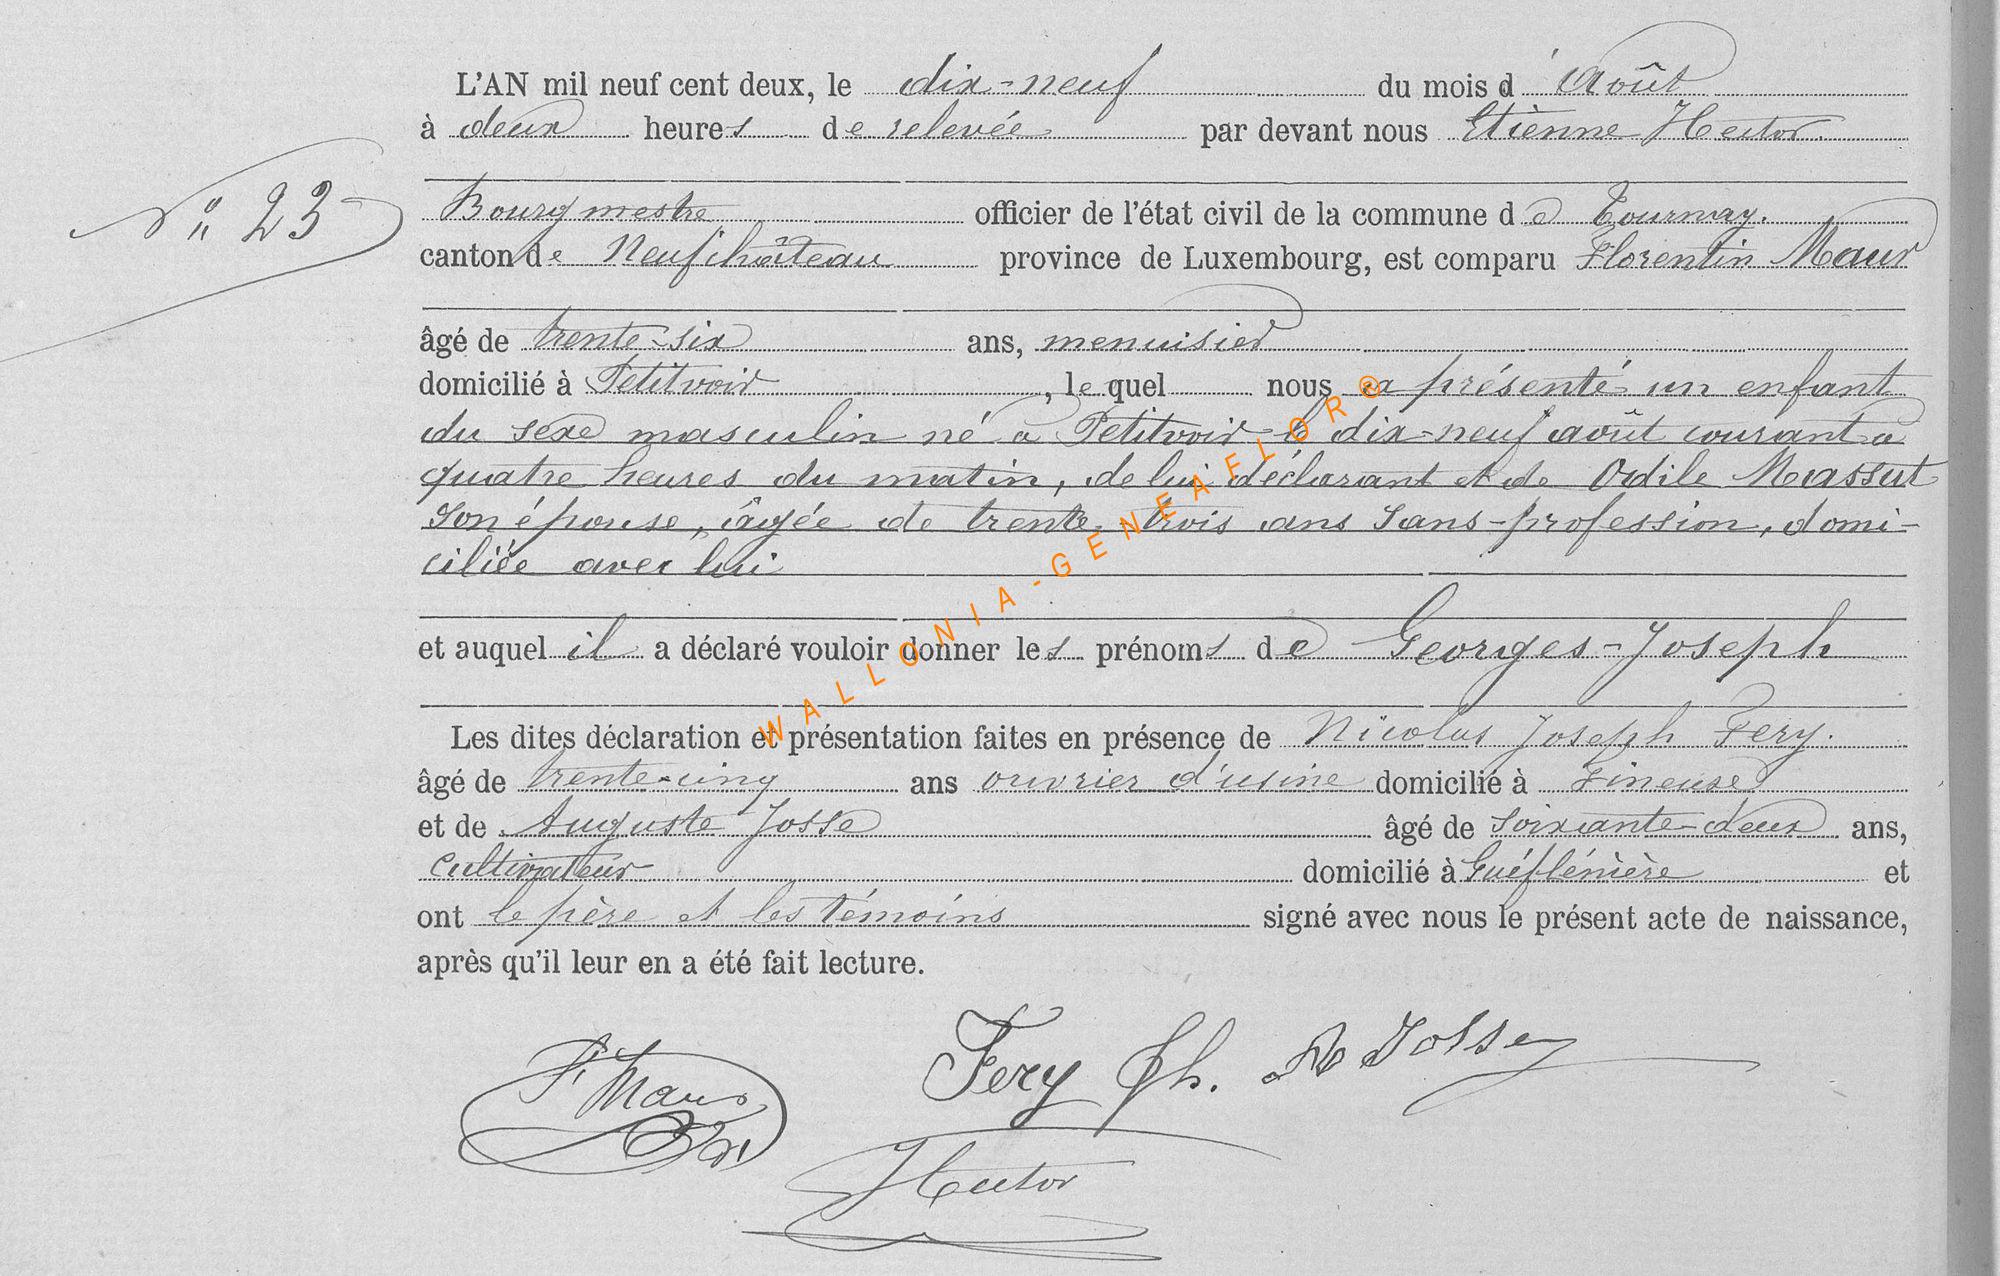 L'AN mil neuf cent deux, le dix-neuf du mois d'Août
à deux heures de relevée par devant nous Etienne Hector.
N° 23
Bourgmestre officier de l'état civil de la commune de Tournay.
canton de Neufchâteau province de Luxembourg, est comparu Florentin Maur
âgé de trente-six ans, menuisier
domicilié à Petitvoir, lequel nous a présenté un enfant
du sexe masculin né à Petitvoir le dix-neuf août courant à
quatre heures du matin, de lui déclarant et de Odile Massut
son épouse, âgée de trente-trois ans sans-profession, domi-
ciliée avec lui
et auquel il a déclaré vouloir donner les prénoms de Georges-Joseph
Les dites déclaration et présentation faites en présence de Nicolas Joseph Fery.
âgé de trente-cinq ans ouvrier d'usine domicilié à Fineuse
et de Auguste Josse âgé de soixante-deux ans,
cultivateur domicilié à et
ont le père et les témoins signé avec nous le présent acte de naissance,
après qu'il leur en a été fait lecture.
F Maur
Fery Jh. A Josse
Hector
WALLONIA-GENEAFLOR®